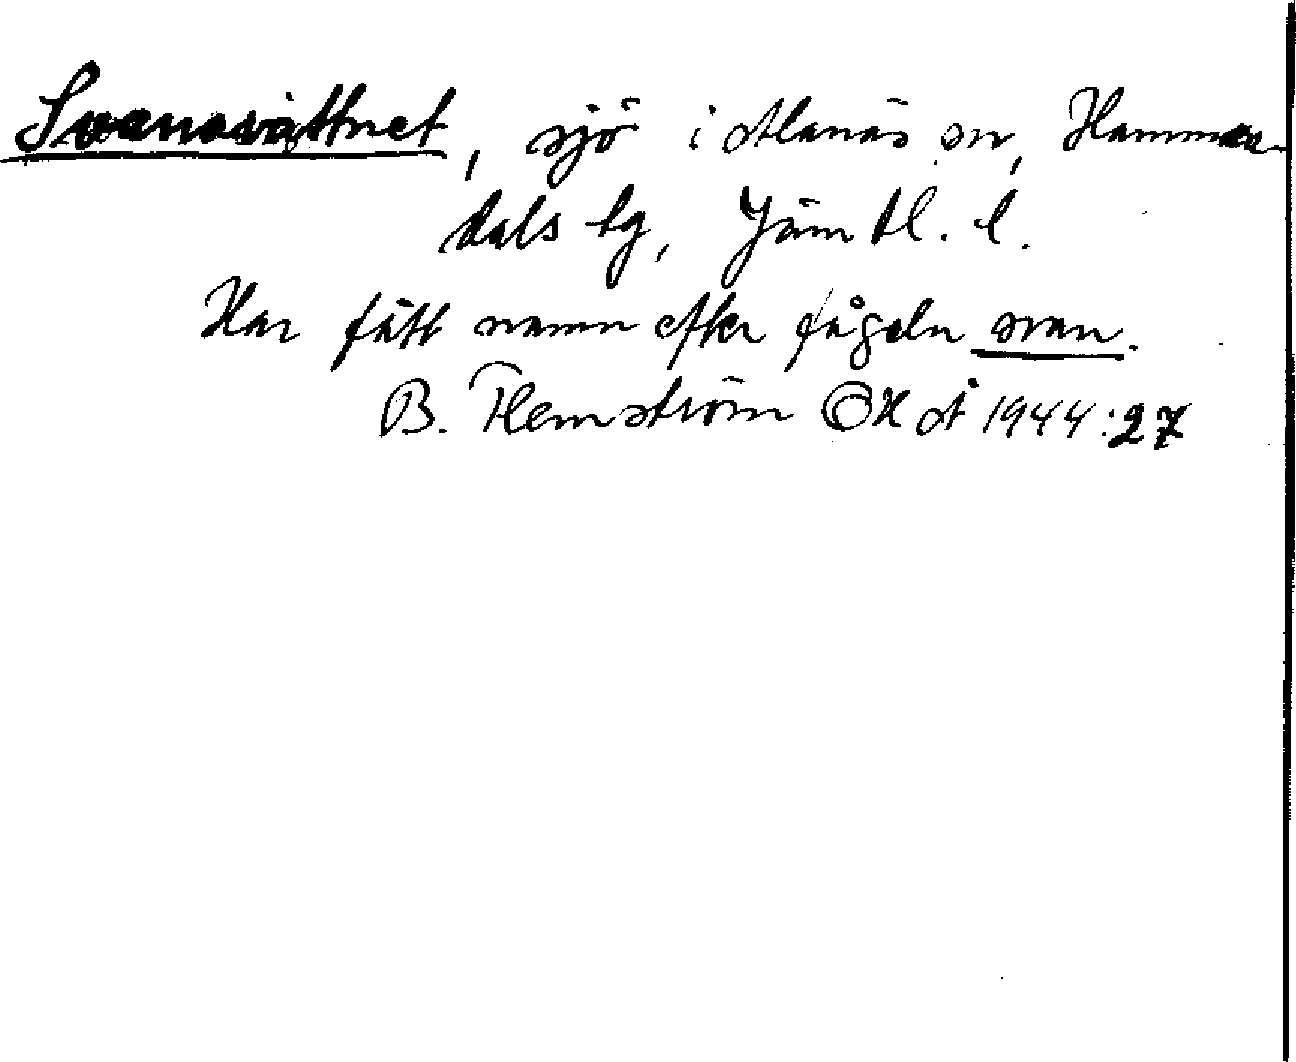 Svansvattnet, sjö i Alanäs sn, Hammer-
dals tg, Jämtl. l.
Har fått namn efter fågeln svan.
B. Flemström OHÅ 1944:27